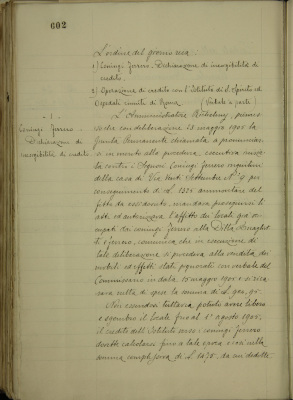 602
L'ordine del giorno reca:
1) Coniugi Jerrero - Dichiarazione di inesigibilità di
credito.
2) Operazione di credito con l'Istituto di S. Spirito ed
Ospedali riuniti di Roma (Verbale a parte)
- 1 -
Coniugi Jerrero -
Dichiarazione di
inesigibilità di credito.
L'Amministratore
che con deliberazione 23 maggio 1905 la
Giunta Permanente chiamata a pronunciar-
si in merito alla procedura, esecutiva
contro i Signori Coniugi Jerrero inquilini
della casa di Via Venti Settembre N° pel
conseguimento di L. 1375 ammontare del
fitto da essi dovuto, mandava proseguirsi la
atti ed autorizzava l'affitto dei locali già oc-
cupati dai coniugi Jerrero alla Ditta
e Jerrero, comunica che in esecuzione di
tale deliberazione si procedeva alla vendita dei
mobili ed effetti stati pignorati con verbale del
Commissario in data 15 maggio 1905 e si rica-
cava netta di spese la somma di L. 90,95.
Non essendosi tuttavia potuto avere libero
e sgombro il locale fino al 1° agosto 1905,
il credito dell'Istituto verso i coniugi Jerrero
dovette calcolarsi fino a tale epoca e così nella
somma complessiva di L. 1475. da cui dedotte